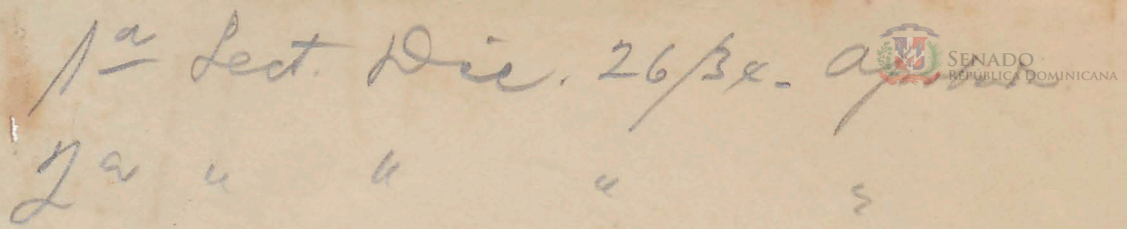 1ª Lect. Dic. 26/34-
SENADO
REPÚBLICA DOMINICANA
2ª " " " "